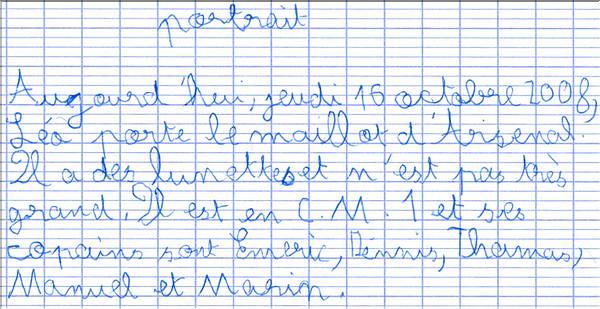 portrait
Aujourd'hui, jeudi 16 octobre 2008,
Léo porte le maillot d'Arsenal.
Il a des lunettes et n'est pas très
grand. Il est en C.M.1 et ses
copains sont Emeric, Dénnis, Thomas,
Manuel et Marin.